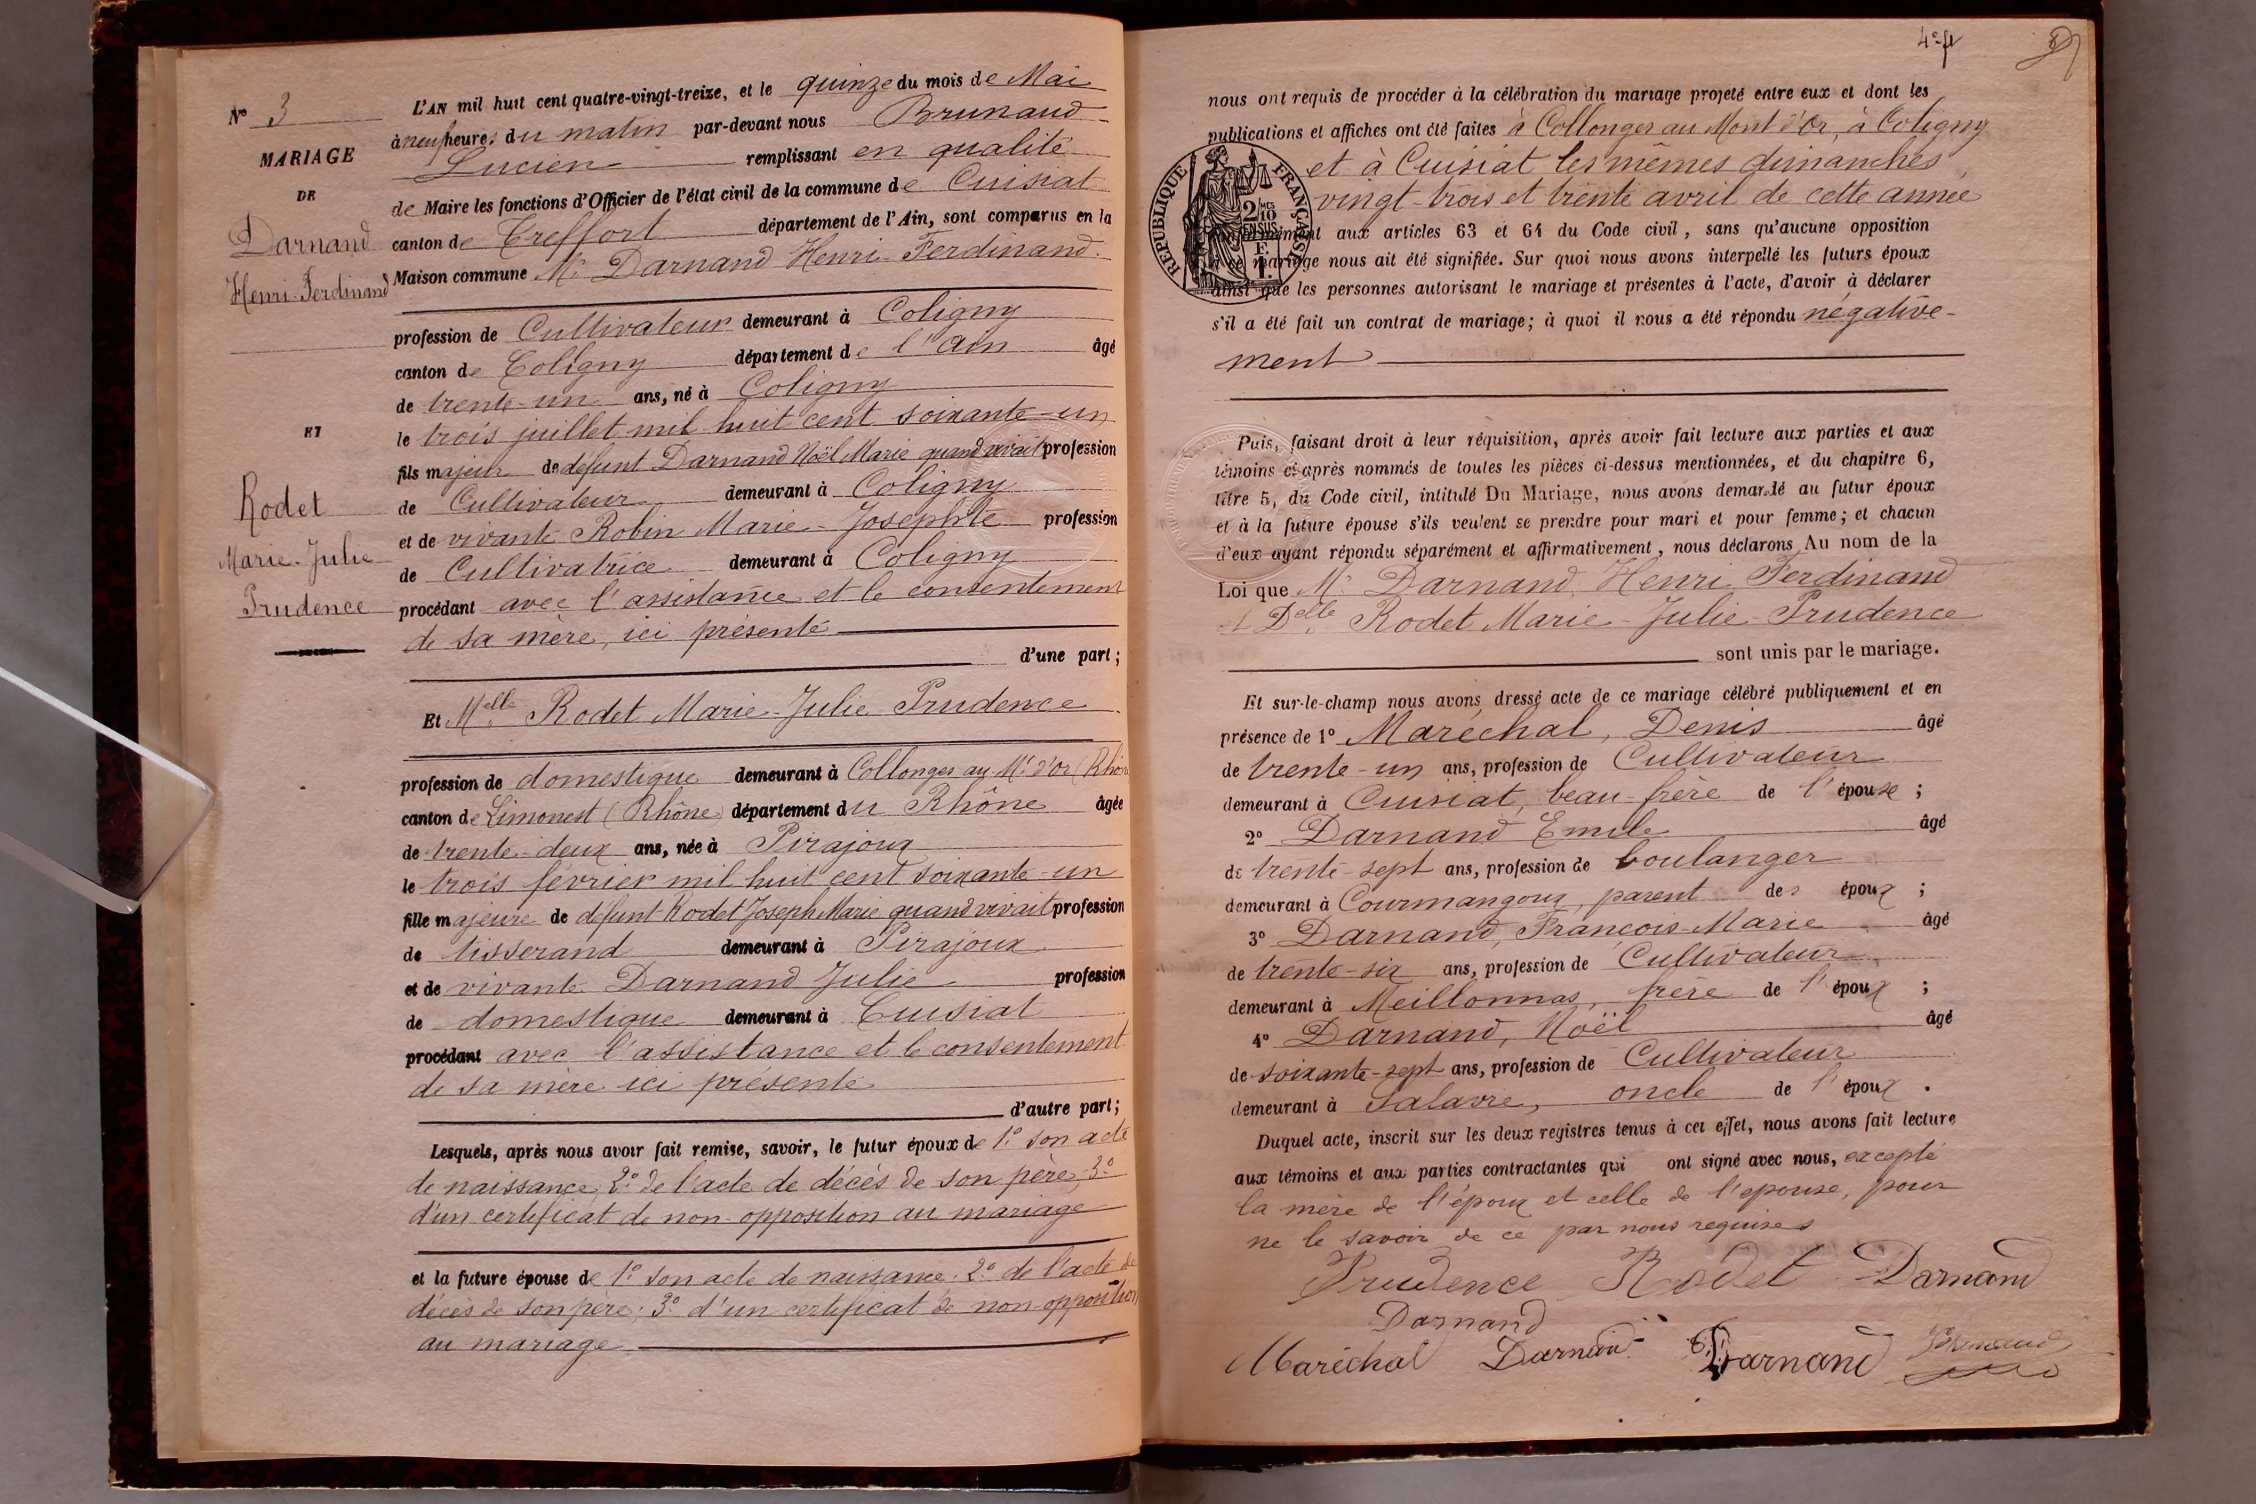 N° 3
MARIAGE
DE
Darnand
Henri-Ferdinand
ET
Rodet
Marie-Julie
Prudence
L'AN mil huit cent quatre-vingt-treize, et le quinze du mois de Mai
à neuf heures du matin par-devant nous Brunaud
Lucien remplissant en qualité
de Maire les fonctions d'Officier de l'état civil de la commune de Cuisiat
canton de Treffort département de l'Ain, sont comparus en la
Maison commune Mr Darnand Henri-Ferdinand.
profession de Cultivateur demeurant à Coligny
canton de Coligny département de l'Ain âgé
de trente-un ans, né à Coligny
le trois juillet mil huit cent soixante-un
fils majeur de défunt Darnand Noël Marie quand vivait profession
de Cultivateur demeurant à Coligny
et de vivante Robin Marie-Josephte profession
de Cultivatrice demeurant à Coligny
procédant avec l'assistance et le consentement
de sa mère, ici présente
d'une part;
Et Melle Rodet Marie-Julie Prudence
profession de domestique demeurant à Collonges au Mt d'or (Rhône
canton de Limonest (Rhône) département du Rhône âgée
de trente-deux ans, née à Pirajoux
le trois février mil huit cent soixante-un
fille majeure de défunt Rodet Joseph Marie quand vivait profession
de tisserand demeurant à Pirajoux
et de vivante Darnand Julie profession
de domestique demeurant à Cuisiat
procédant avec l'assistance et le consentement
de sa mère ici présente
d'autre part;
Lesquels, après nous avoir fait remise, savoir, le futur époux de 1° son acte
de naissance, 2° de l'acte de décès de son père, 3°
d'un certificat de non-opposition au mariage
et la future épouse de 1° son acte de naissance; 2° de l'acte de
décès de son père; 3° d'un certificat de non-opposition
au mariage
4e f
nous ont requis de procéder à la célébration du mariage projeté entre eux et dont les
publications et affiches ont été faites à Collonges au Mont d'Or, à Coligny
et à Cuisiat les mêmes dimanches
vingt-trois et trente avril de cette année
RÉPUBLIQUE FRANÇAISE
2 MES
10
EN SUS
1 F.
conformément aux articles 63 et 64 du Code civil, sans qu'aucune opposition
à ce mariage nous ait été signifiée. Sur quoi nous avons interpellé les futurs époux
ainsi que les personnes autorisant le mariage et présentes à l'acte, d'avoir à déclarer
s'il a été fait un contrat de mariage; à quoi il nous a été répondu négative-
ment
Puis, faisant droit à leur réquisition, après avoir fait lecture aux parties et aux
témoins ci-après nommés de toutes les pièces ci-dessus mentionnées, et du chapitre 6,
titre 5, du Code civil, intitulé Du Mariage, nous avons demandé au futur époux
et à la future épouse s'ils veulent se prendre pour mari et pour femme; et chacun
d'eux ayant répondu séparément et affirmativement, nous déclarons Au nom de la
Loi que Mr Darnand, Henri Ferdinand
et Delle Rodet Marie-Julie-Prudence
sont unis par le mariage.
Et sur-le-champ nous avons dressé acte de ce mariage célébré publiquement et en
présence de 1° Maréchal, Denis âgé
de trente-un ans, profession de Cultivateur
demeurant à Cuisiat, beau-frère de l'épouse;
2° Darnand Emile âgé
de trente-sept ans, profession de boulanger
demeurant à Courmangoux, parent des époux;
3° Darnand, François-Marie âgé
de trente-six ans, profession de Cultivateur
demeurant à Meillonnas, frère de l'époux;
4° Darnand, Noël âgé
de soixante-sept ans, profession de Cultivateur
demeurant à Salavre, oncle de l'époux.
Duquel acte, inscrit sur les deux registres tenus à cet effet, nous avons fait lecture
aux témoins et aux parties contractantes qui ont signé avec nous, excepté
la mère de l'époux et celle de l'epouse, pour
ne le savoir de ce par nous requises
Prudence Rodet Darnand
Darnand
Maréchal Darnand E. Darnand Brunaud